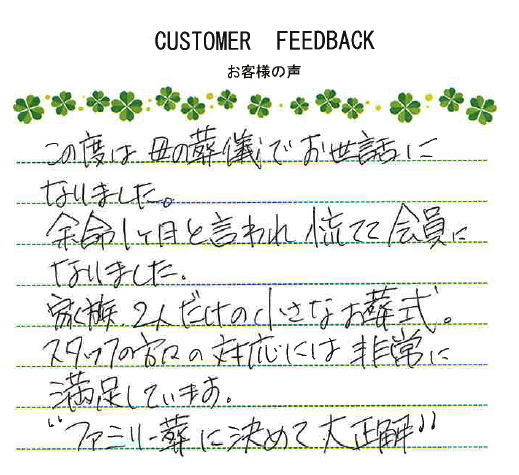 CUSTOMER FEEDBACK
お客様の声
この度は母の葬儀でお世話に
なりました。
余命1ヶ月と言われ慌てて会員に
なりました。
家族、2人だけの小さなお葬式。
スタッフの客々の対応には非常に
満足しています。
"ファミリー葬に決めて大正解"